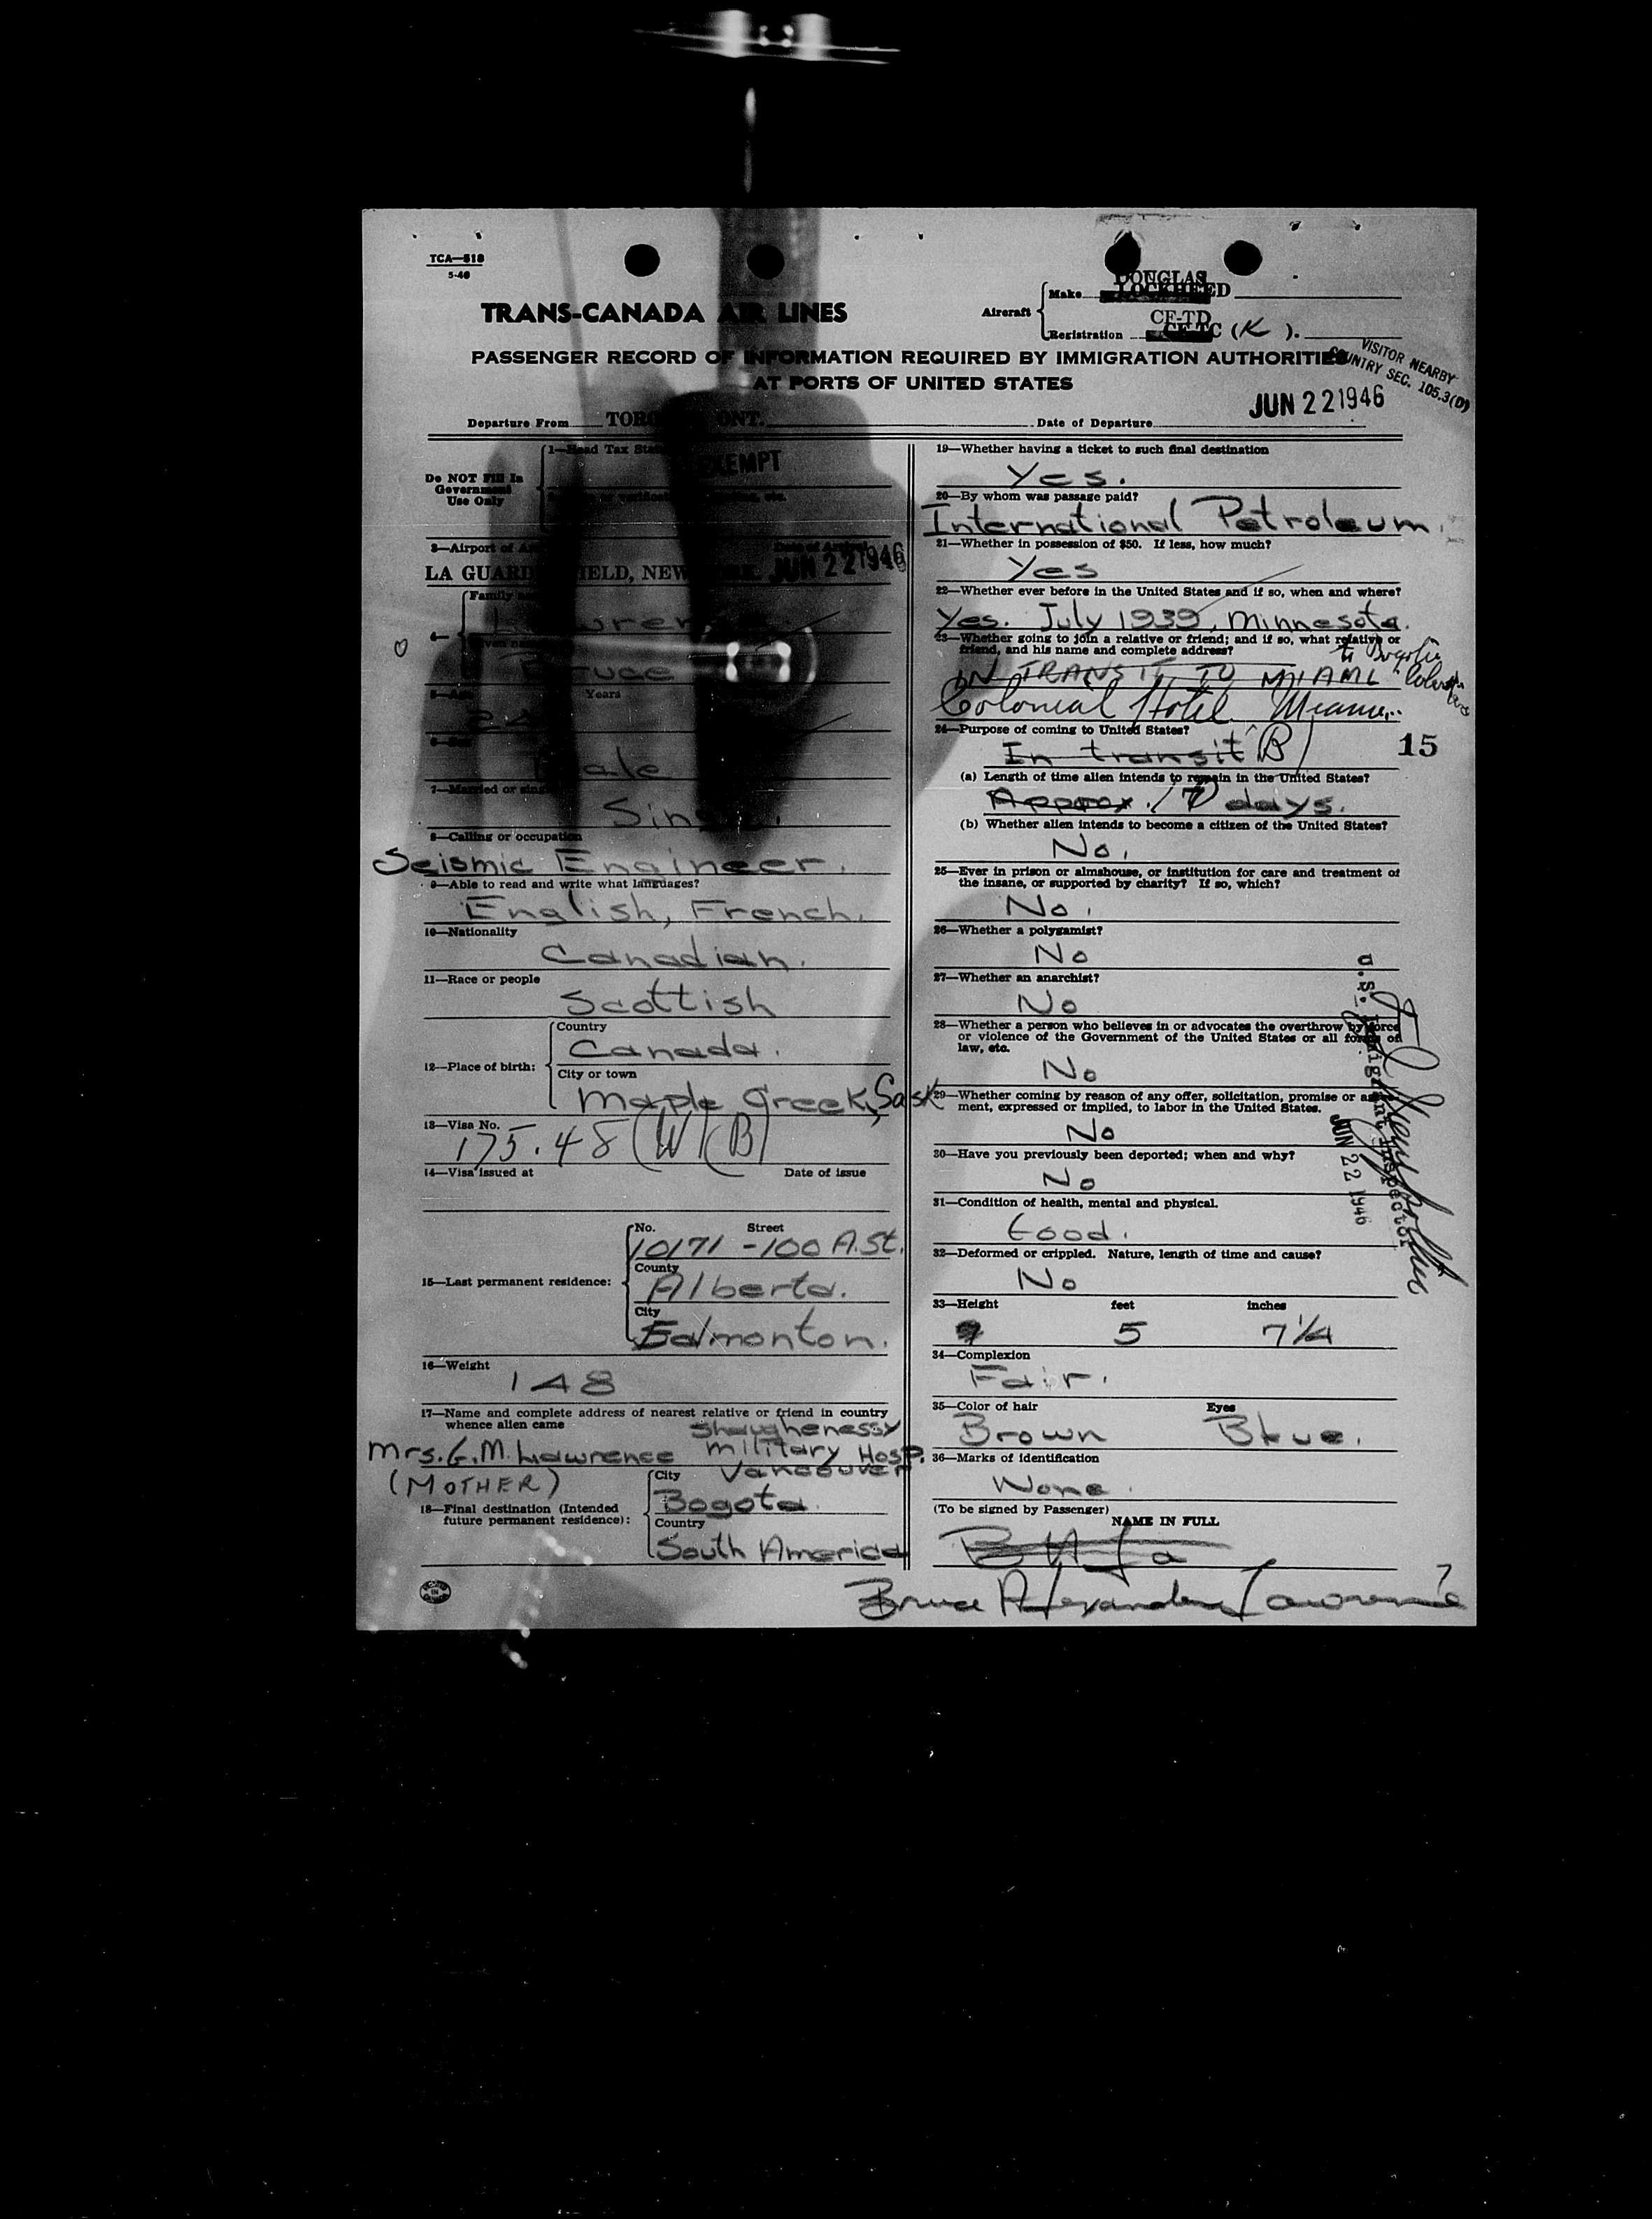 TCA—518
5-46
DOUGLAS
Aircraft
Make LOCKHEED
CF-TD
Registration CF-TC (K).
TRANS-CANADA AIR LINES
PASSENGER RECORD OF INFORMATION REQUIRED BY IMMIGRATION AUTHORITIES
AT PORTS OF UNITED STATES
VISITOR NEARBY
COUNTRY SEC. 105.3(D)
JUN 22 1946
Departure From TORONTO ONT.
Date of Departure
Do NOT Fill In
Government
Use Only
1—Head Tax
EXEMPT
3—Airport of
JUN 22 1946
LA GUARDIA FIELD, NEW
4—
Family
Lawrence
Bruce
5—Age Years
24
Male
7—Married or single
Single.
8—Calling or occupation
Seismic Engineer.
9—Able to read and write what languages?
English, French.
10—Nationality
Canadian.
11—Race or people
Scottish
12—Place of birth:
Country
Canada.
City or town
Maple Creek, Sask
13—Visa No.
175.48 (W) (B)
14—Visa issued at Date of issue
15—Last permanent residence:
No. Street
10171 - 100 A. St.
County
Alberta.
City
Edmonton.
16—Weight
148
17—Name and complete address of nearest relative or friend in country
whence alien came
Shaughenessy
Mrs. G. M. Lawrence Military Hosp.
Vancouver
(MOTHER)
18—Final destination (Intended
future permanent residence):
City
Bogota.
Country
South America
19—Whether having a ticket to such final destination
Yes.
20—By whom was passage paid?
International Petroleum.
21—Whether in possession of $50. If less, how much?
Yes
22—Whether ever before in the United States and if so, when and where?
Yes. July 1939, Minnesota.
23—Whether going to join a relative or friend; and if so, what relative or
friend, and his name and complete address?
IN TRANSIT TO MIAMI to Bogota
Colonial Hotel. Miami..
24—Purpose of coming to United States?
In transit (B)
15
(a) Length of time alien intends to remain in the United States?
Approx. days.
(b) Whether alien intends to become a citizen of the United States?
No.
25—Ever in prison or almshouse, or institution for care and treatment of
the insane, or supported by charity? If so, which?
No.
26—Whether a polygamist?
No
27—Whether an anarchist?
No
28—Whether a person who believes in or advocates the overthrow by force
or violence of the Government of the United States or all forms of
law, etc.
No
29—Whether coming by reason of any offer, solicitation, promise or agree-
ment, expressed or implied, to labor in the United States.
No
30—Have you previously been deported; when and why?
No
31—Condition of health, mental and physical.
Good.
32—Deformed or crippled. Nature, length of time and cause?
No
33—Height feet inches
5 7 1/4
34—Complexion
Fair.
35—Color of hair Eyes
Brown Blue.
36—Marks of identification
None.
(To be signed by Passenger)
NAME IN FULL
B A La
Bruce Alexander Lawrence
U.S. Immigrant Inspector
JUN 22 1946